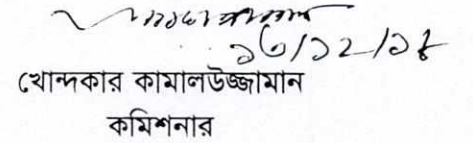 ১৩/১২/১৮
খোন্দকার কামালউজ্জামান
কমিশনার